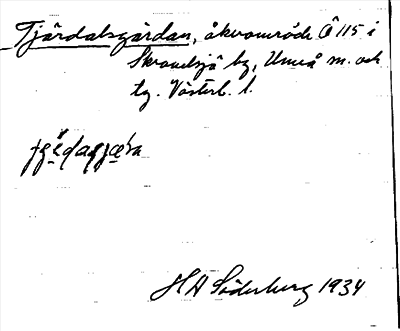 Tjärdalsgärdan, åkerområde Ö 115 i
Skravelsjö by, Umeå m. och
tg. Västerb. l.
HA Söderberg 1934